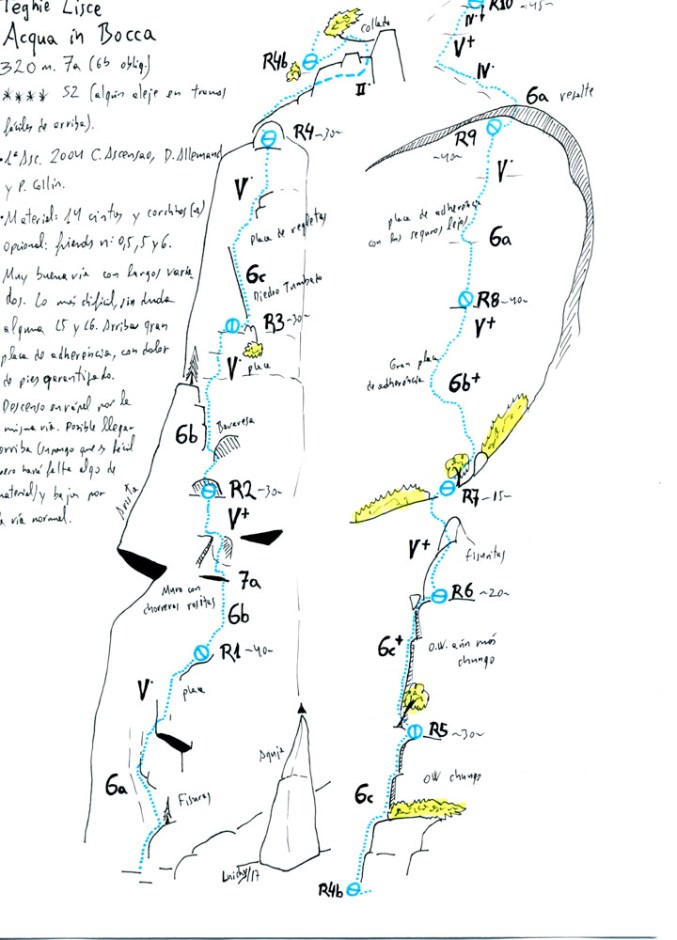 Teghie Lisce
Acqua in Bocca
320 m. 7a (6b oblig.)
**** S2 (algún aleje en tramos
fáciles de arriba).
1ª Asc. 2004 C. Ascensao, D. Allemand
y P. Collin.
Material: 14 cintas y
opcional: friends nº 0,5, 5 y 6.
Muy buena vía con largos varia
dos. Lo más difícil, sin duda
alguna L5 y L6. Arriba gran
placa de adherencia, con dolor
de pies garantizado.
Descenso en rápel por la
misma vía. Posible llegar
arriba (supongo que es fácil
pero hará falta algo de
material) y bajar por
la vía normal.
collado
R4b
II
R4 ~30~
V
placa de regletas
6c
Diedro Tumbado
R3 ~30~
V
placa
6b
Bavaresa
Arista
R2 ~30~
V+
7a
Muro con
chorreras
6b
R1 ~40~
V
placa
6a
Fisuras
Aguja
Luichy/17
R10 ~45~
IV+
V+
IV
6a resalte
R9
~40~
V
placa de adherencia
con los seguros lejos
6a
R8 ~40~
V+
Gran placa
de adherencia
6b+
R7 ~15~
V+
fisuritas
R6 ~20~
6c+
O.W. aún más
chungo
R5 ~30~
OW chungo
6c
R4b